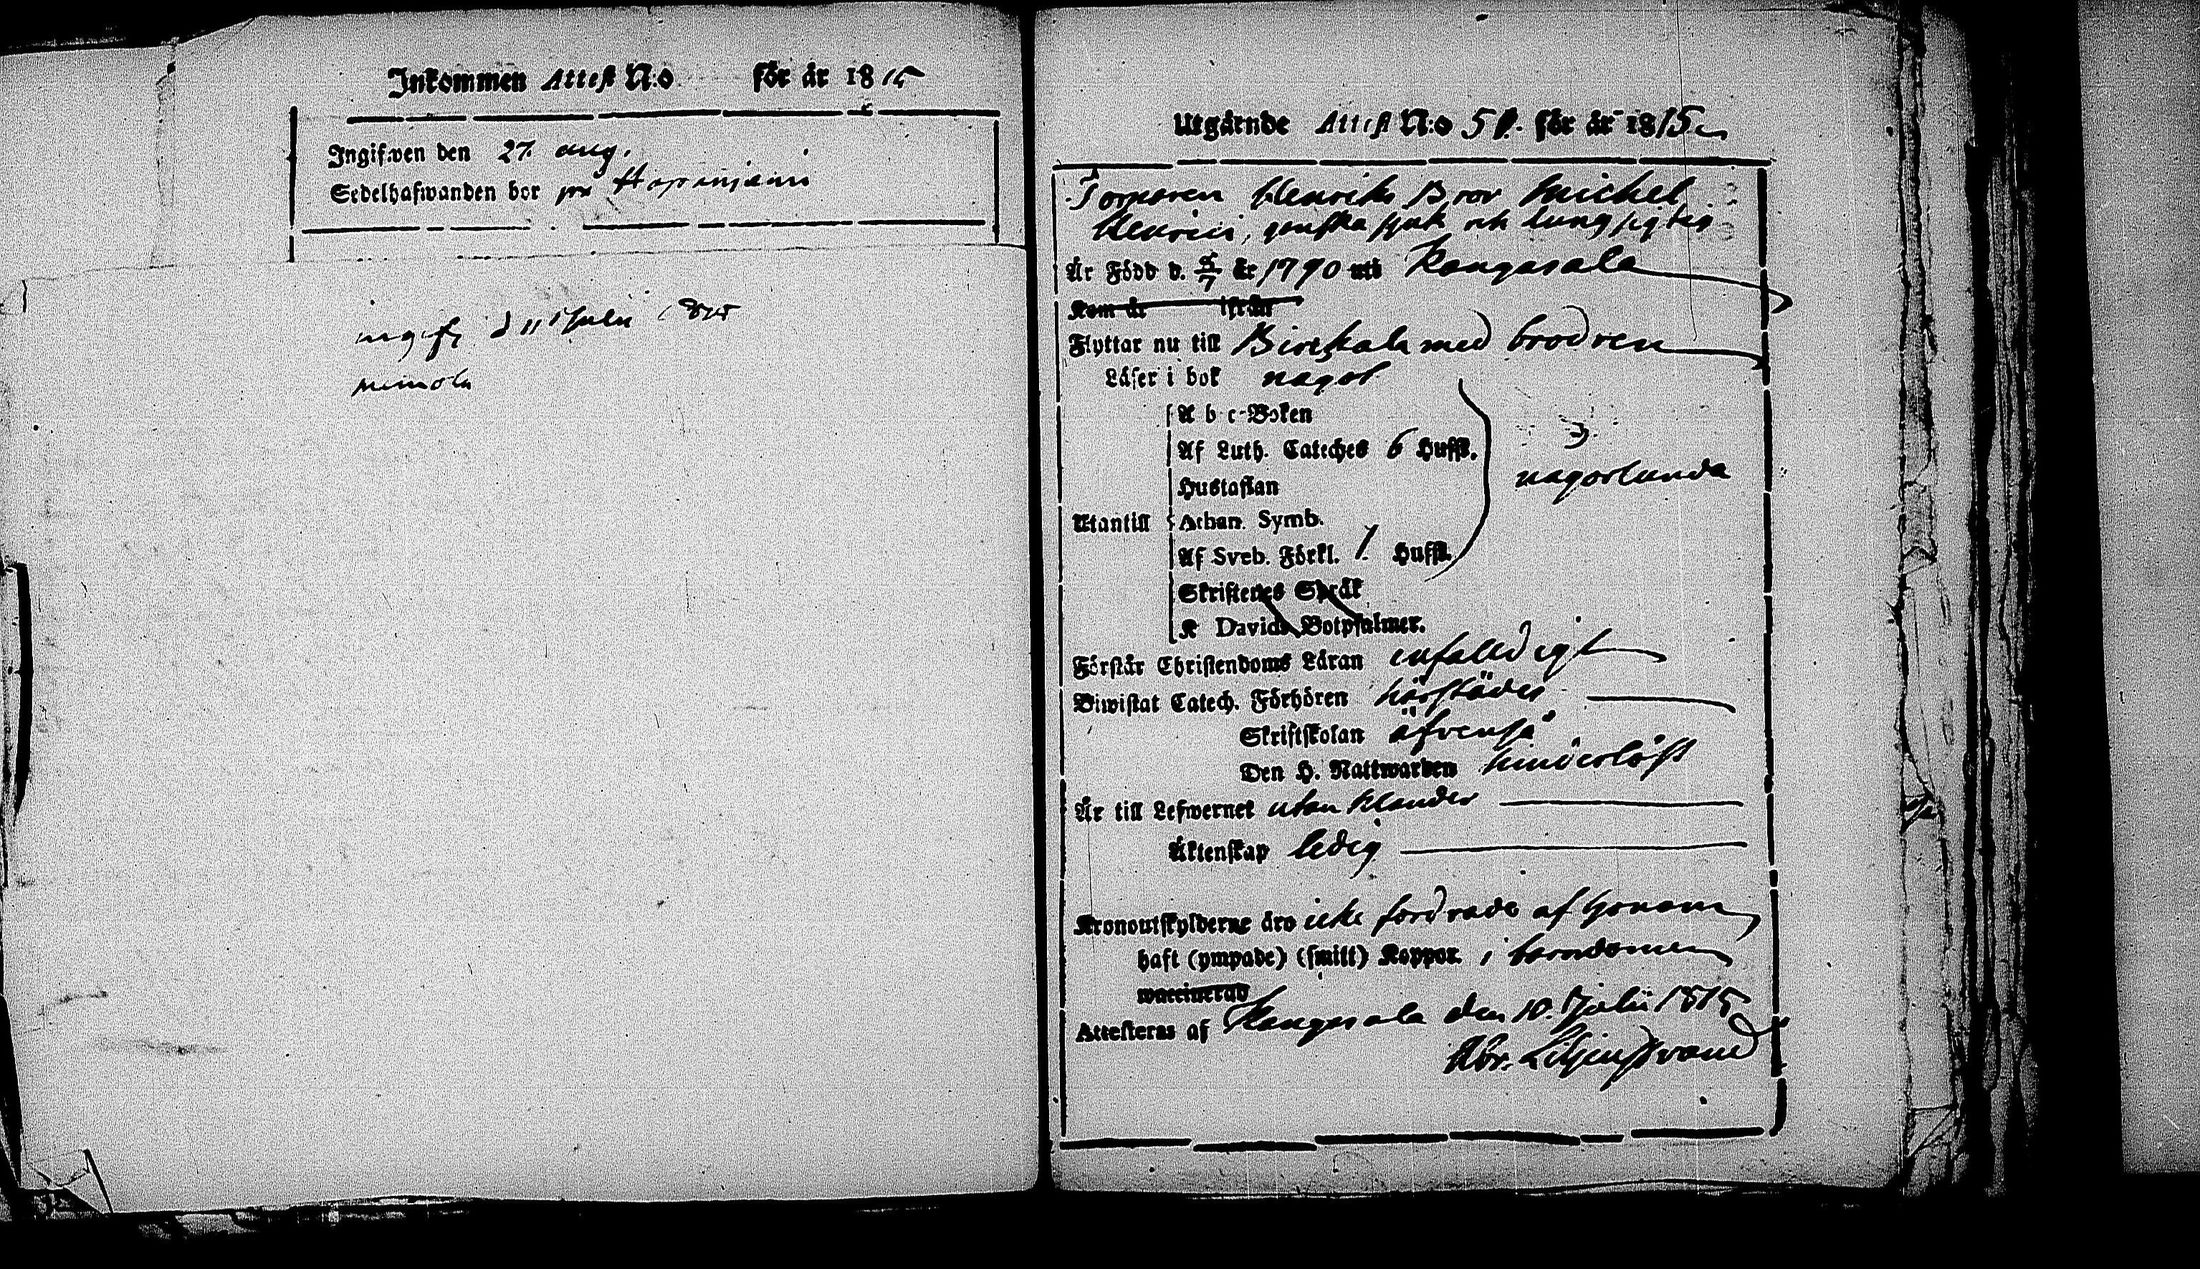 Inkommen Attest N:o för år 1815
Ingifwen den 27. aug.
Sedelhafwanden bor på
ingif. d 11 Julii 1815
Utgående Attest N:o för år 1815
Torparen Henriks Bror Michel
Henrici, ganska sjuk och lungsigtig
Är Född d. 5/7 år 1790 uti Kangasala
Kom år ifrån
Flyttar nu till Birkala med brodren
Läser i bok något
A b c-Boken
Af Luth. Cateches 6 Hufst.
Hustaflan
någorlunda
Utantill Athan. Symb.
Af Sveb. Förkl. 1. Hufst.
Skriftenes Språk
K Davids Botpsalmer.
Förstår Christendoms Läran enfalldigt
Biwistat Catech. Förhören härstädes
Skriftskolan äfvenså
Den H. Nattwarden hinderlöst
Är till Lefwernet utan klander
Äktenskap ledig
Kronoutskylderne äro icke fordrade af honom
haft (ympade) (smitt) Koppor i barndomen
waccinerad
Attesteras af Kangasala den 10. Julii 1815
Abr. Liljenstrand